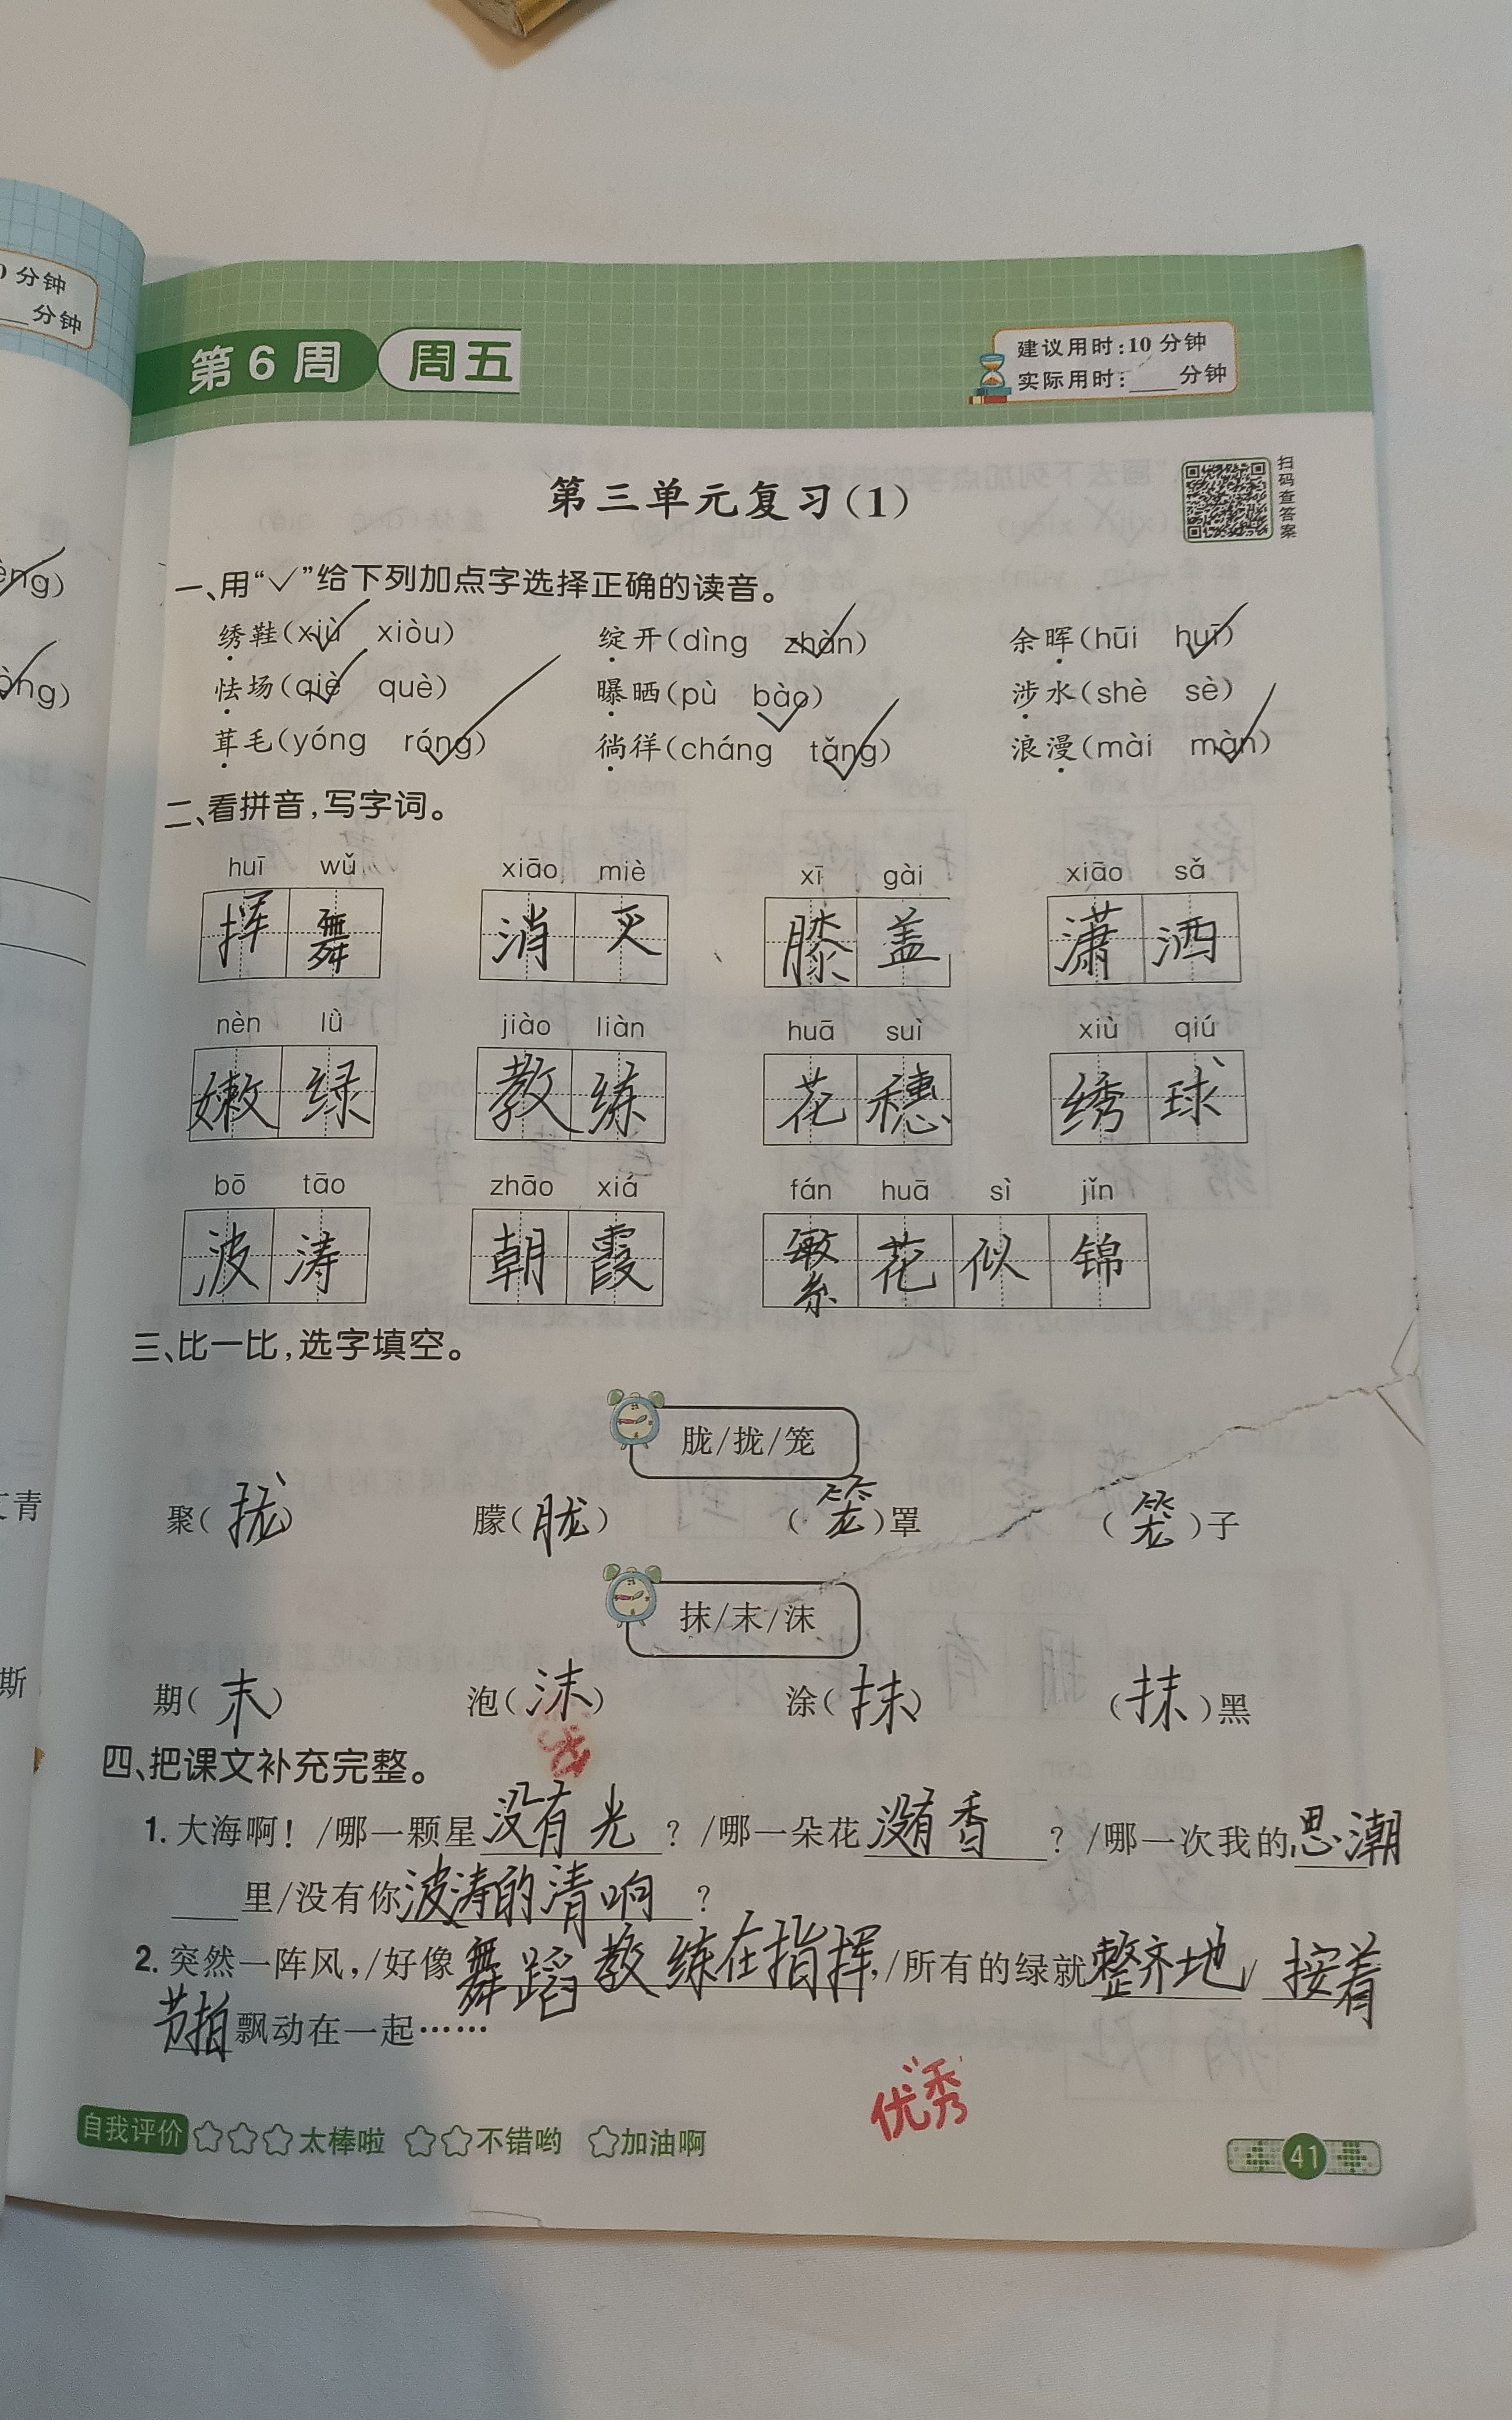 分钟
分钟
第6周 周五
建议用时:10分钟
实际用时:____分钟
第三单元复习(1)
扫码查答案
一、用“✓”给下列加点字选择正确的读音。
绣鞋(xiù✓ xiòu) 绽开(dìng zhàn✓) 余晖(hūi huī✓)
怯场(qiè✓ què) 曝晒(pù bào✓) 涉水(shè sè)
茸毛(yóng róng✓) 徜徉(cháng tǎng✓) 浪漫(mài màn✓)
二、看拼音,写字词。
huī wǔ xiāo miè xī gài xiāo sǎ
挥舞 消灭 膝盖 潇洒
nèn lǜ jiào liàn huā suì xiù qiú
嫩绿 教练 花穗 绣球
bō tāo zhāo xiá fán huā sì jǐn
波涛 朝霞 繁花似锦
三、比一比,选字填空。
胧/拢/笼
聚(拢) 朦(胧) (笼)罩 (笼)子
抹/末/沫
期(末) 泡(沫) 涂(抹) (抹)黑
四、把课文补充完整。
1. 大海啊!/哪一颗星没有光?/哪一朵花没有香?/哪一次我的思潮
里/没有你波涛的清响?
2. 突然一阵风,/好像舞蹈教练在指挥,/所有的绿就整齐地/按着
节拍飘动在一起……
优秀
自我评价 ☆☆☆太棒啦 ☆☆不错哟 ☆加油啊
41